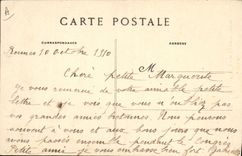 CARTE POSTALE
CORRESPONDANCE
ADRESSE
Rennes 10 Octobre 1910
M
Chère petite Marguerite
je vous remercie de votre aimable petite
lettre et je vois que vous n'oubliez pas
vos grandes amies bretonnes. Nous pensons
souvent à vous et aux bons jours que nous
avons passés ensemble pendant le Congrès
Petite amie je vous embrasse bien fort